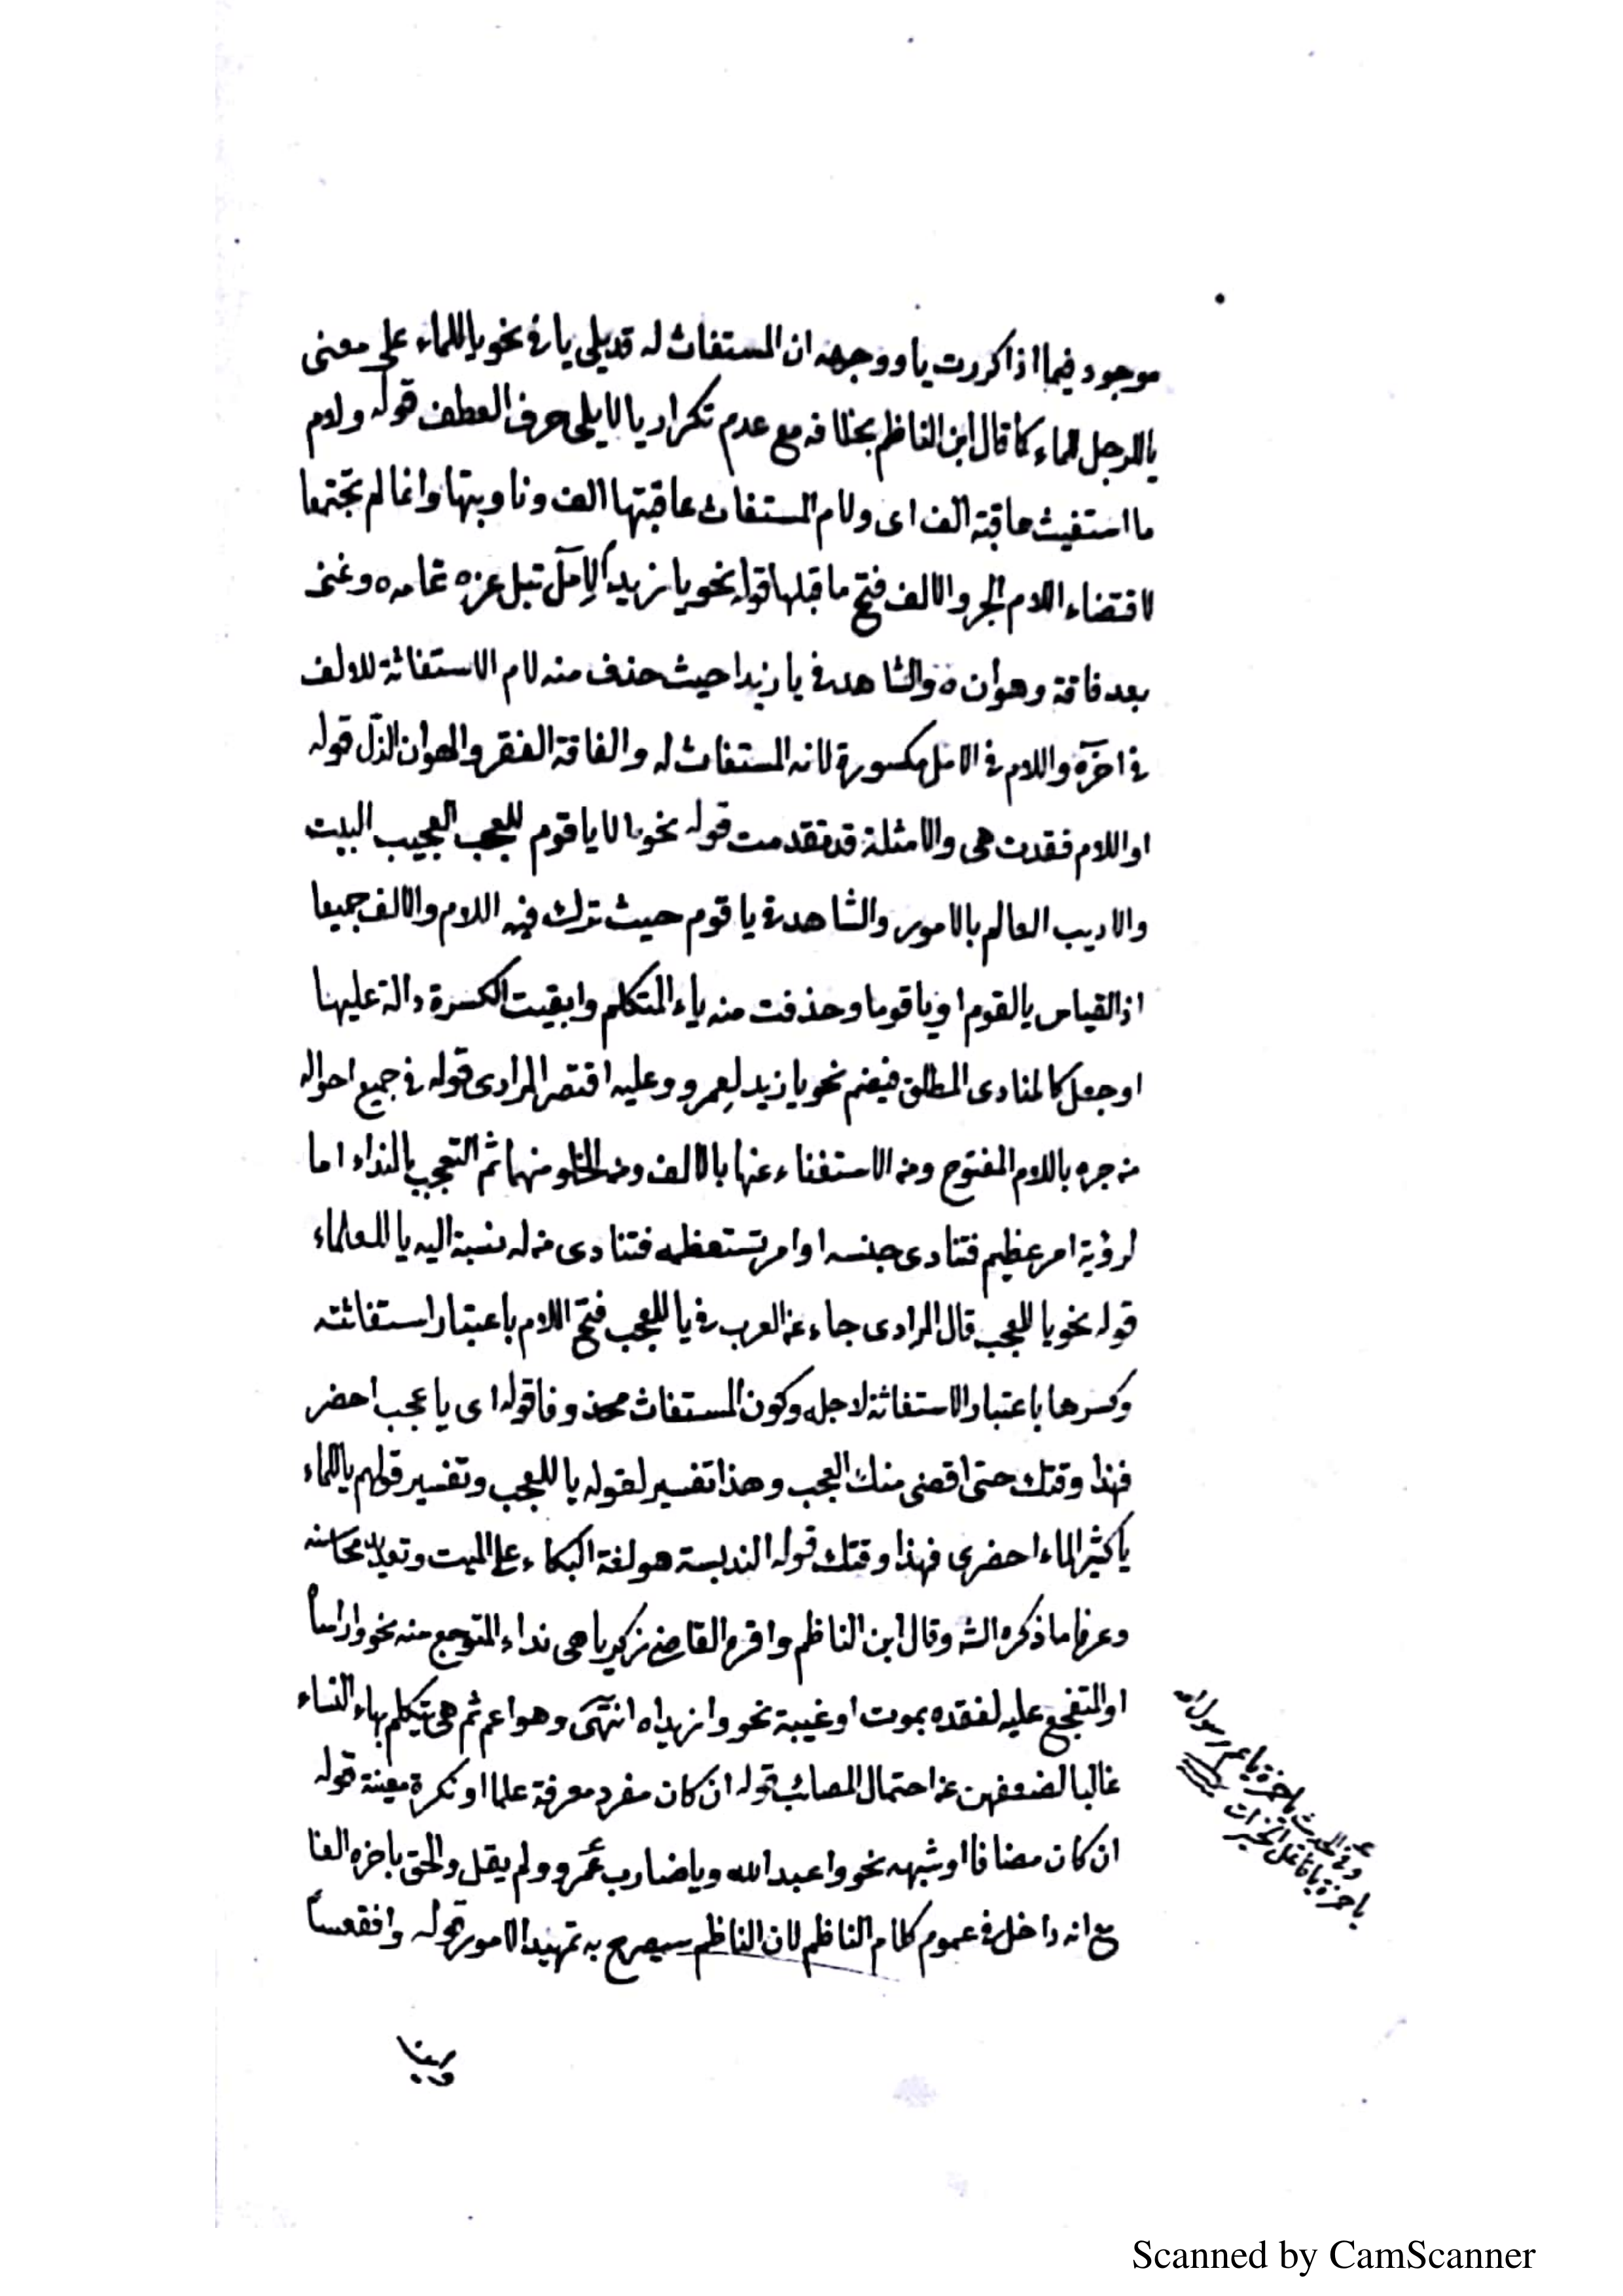 موجود فيما اذا كررت يا ووجهه ان المستغاث له قد يلى يا فى نحو ياللماء على معنى
ياللرجل للماء كما قال ابن الناظم بخلافه مع عدم تكرار يا لا يلى حرف العطف قوله ولام
ما استغيث عاقبته الف اى ولام المستغاث عاقبتها الف وناوبتها وانما لم تجتمعا
لاقتضاء اللام الجر والالف فتح ما قبلها قوله نحو يا زيدا لآمل نيل عزه تمامه وغنى
بعد فاقة وهوان ه والشاهد فى يا زيدا حيث حذف منه لام الاستغاثة للالف
فى اخره واللام فى لامل مكسورة لانه المستغاث له والفاقة الفقر والهوان الذل قوله
او اللام فقدت هى والامثلة قد تقدمت قوله نحو الا يا قوم للعجب العجيب البيت
والاديب العالم بالامور والشاهد فى يا قوم حيث ترك فيه اللام والالف جميعا
اذ القياس يالقوم او يا قوما وحذفت منه ياء المتكلم وابقيت الكسرة دالة عليها
او جعل كالمنادى المطلق فيضم نحو يا زيد لعمرو وعليه اقتصر المرادى قوله فى جميع احواله
من جره باللام المفتوح ومن الاستغناء عنها بالالف ومن الخلو منهما ثم التعجب بالنداء اما
لرؤية امر عظيم فتنادى جنسه او امر تستعظمه فتنادى من له نسبة اليه يا للعلماء
قوله نحو يا للعجب قال المرادى جاء عن العرب فى يا للعجب فتح اللام باعتبار استغاثته
وكسرها باعتبار الاستغاثة لاجله وكون المستغاث محذوفا قوله اى يا عجب احضر
فهذا وقتك حتى اقضى منك العجب وهذا تفسير لقوله يا للعجب وتفسير قولهم ياللماء
يا كثير الماء احضرى فهذا وقتك قوله الندبة هو لغة البكاء على الميت وتعديد محاسنه
وعرفا ما ذكره الشه وقال ابن الناظم واقره القاضى زكريا هى نداء المتوجع منه نحو واراسا
او المتفجع عليه لفقده بموت او غيبة نحو وازيداه انتهى وهو اعم ثم هى يتكلم بهاء النساء
غالبا لضعفهن عن احتمال المصائب قوله ان كان مفرد معرفة علما او نكرة معينة قوله
ان كان مضافا او شبهه نحو واعبد الله ويا ضارب عمرو ولم يقل والحق باخره الفا
مع انه داخل فى عموم كلام الناظم لان الناظم سيصرح به تمهيد الامور قوله وافقعسا
وفى الحديث يا حمزة يا عم رسول الله
يا حمزة يا فاعل الخيرات